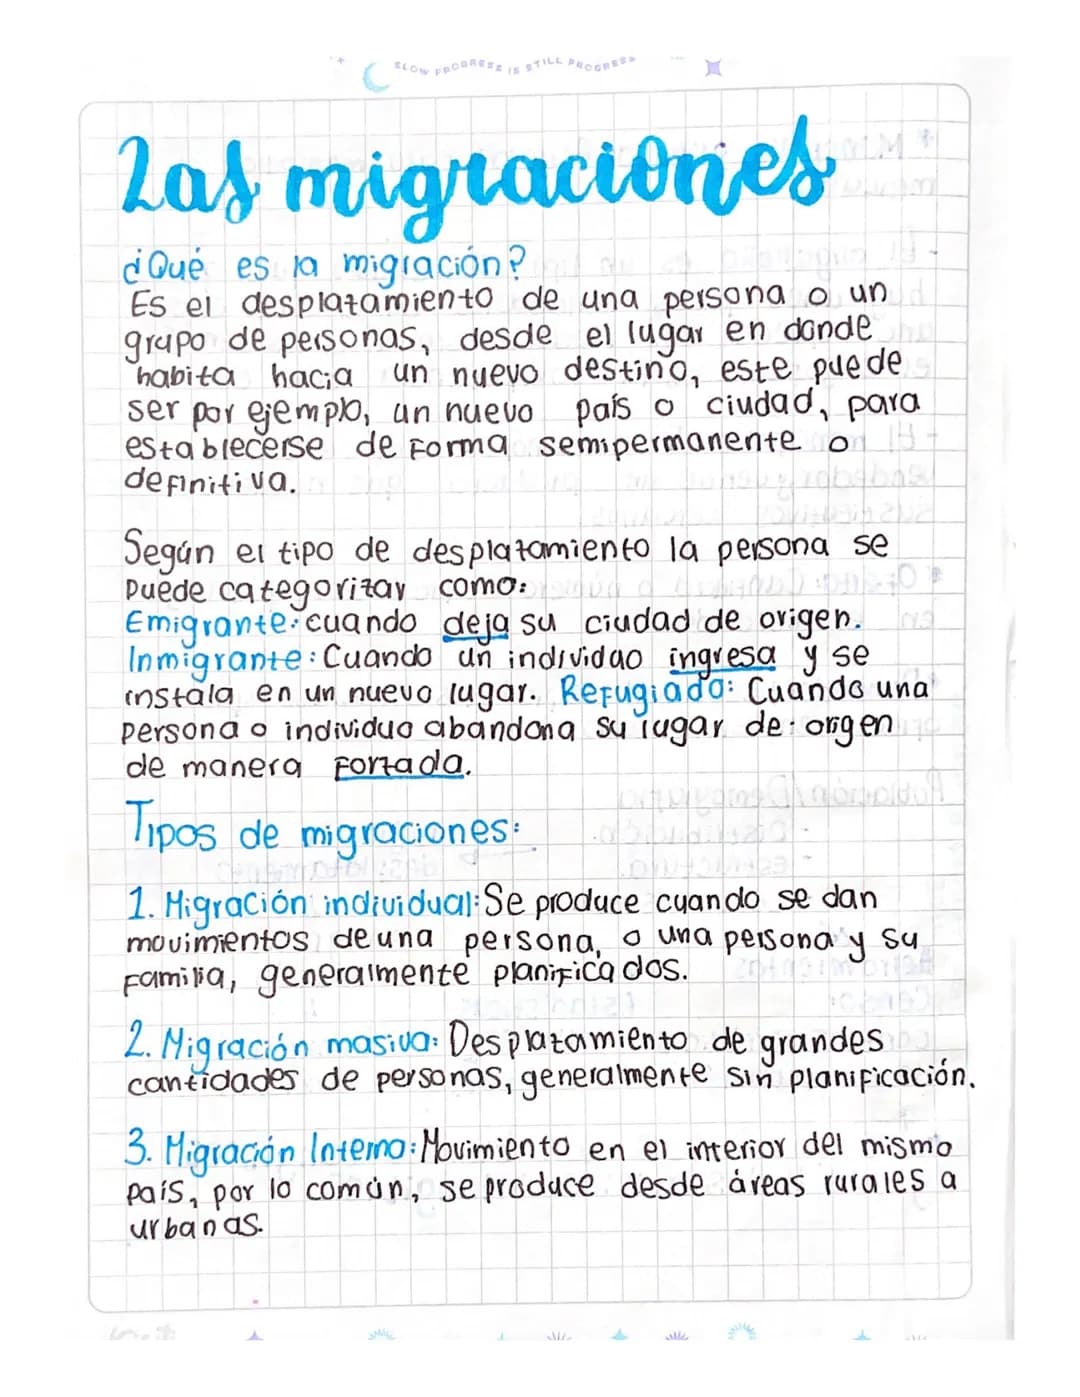 SLOW PROGRESS IS STILL PROGRESS
Las migraciones
¿Qué es la migración?
Es el desplazamiento de una persona o un
grupo de personas, desde el lugar en donde
habita hacia un nuevo destino, este puede
ser por ejemplo, un nuevo país o ciudad, para
establecerse de forma semipermanente o
definitiva.
Según el tipo de desplazamiento la persona se
puede categorizar como:
Emigrante: cuando deja su ciudad de origen.
Inmigrante: Cuando un individuo ingresa y se
instala en un nuevo lugar. Refugiado: Cuando una
persona o individuo abandona su lugar de origen
de manera forzada.
Tipos de migraciones:
1. Migración individual: Se produce cuando se dan
movimientos de una persona, o una persona y su
familia, generalmente planificados.
2. Migración masiva: Desplazamiento de grandes
cantidades de personas, generalmente sin planificación.
3. Migración Interna: Movimiento en el interior del mismo
país, por lo común, se produce desde áreas rurales a
urbanas.